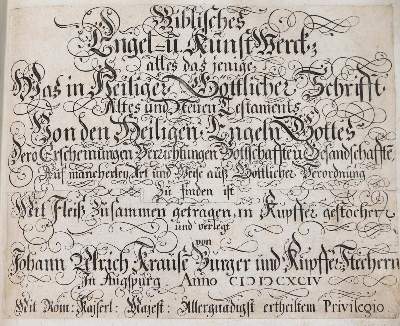 Biblisches
Engel- ū Kunst Werck;
alles das jenige,
Was in Heiliger Göttlicher Schrifft
Altes und Neuen Testaments
Von den Heiligen Engeln Gottes
Dero Erscheinungen Verrichtungen Bottschafften Gesandschafften
Auf mancherley Art und Weise auß Göttlicher Verordnung
Zu finden ist
Mit Fleiß zusammen getragen, in Kupffer gestochen
und verlegt
von
Johann Ulrich Krauß, Burger und Kupffer Stechern
In Augspurg Anno CIↃIↃCXCIV
Mit Röm: Kayserl: Majest: Allergnädigst ertheiltem Privilegio